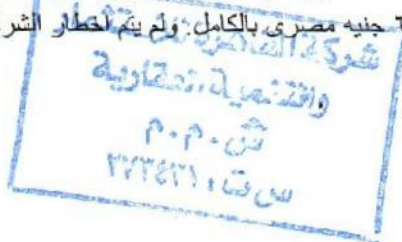 ٦ جنيه مصرى بالكامل. ولم يتم اخطار الشر
شركة القاهرة
والتنمية العقارية
ش.م.م
س ت: ٣٧٣٤٢١